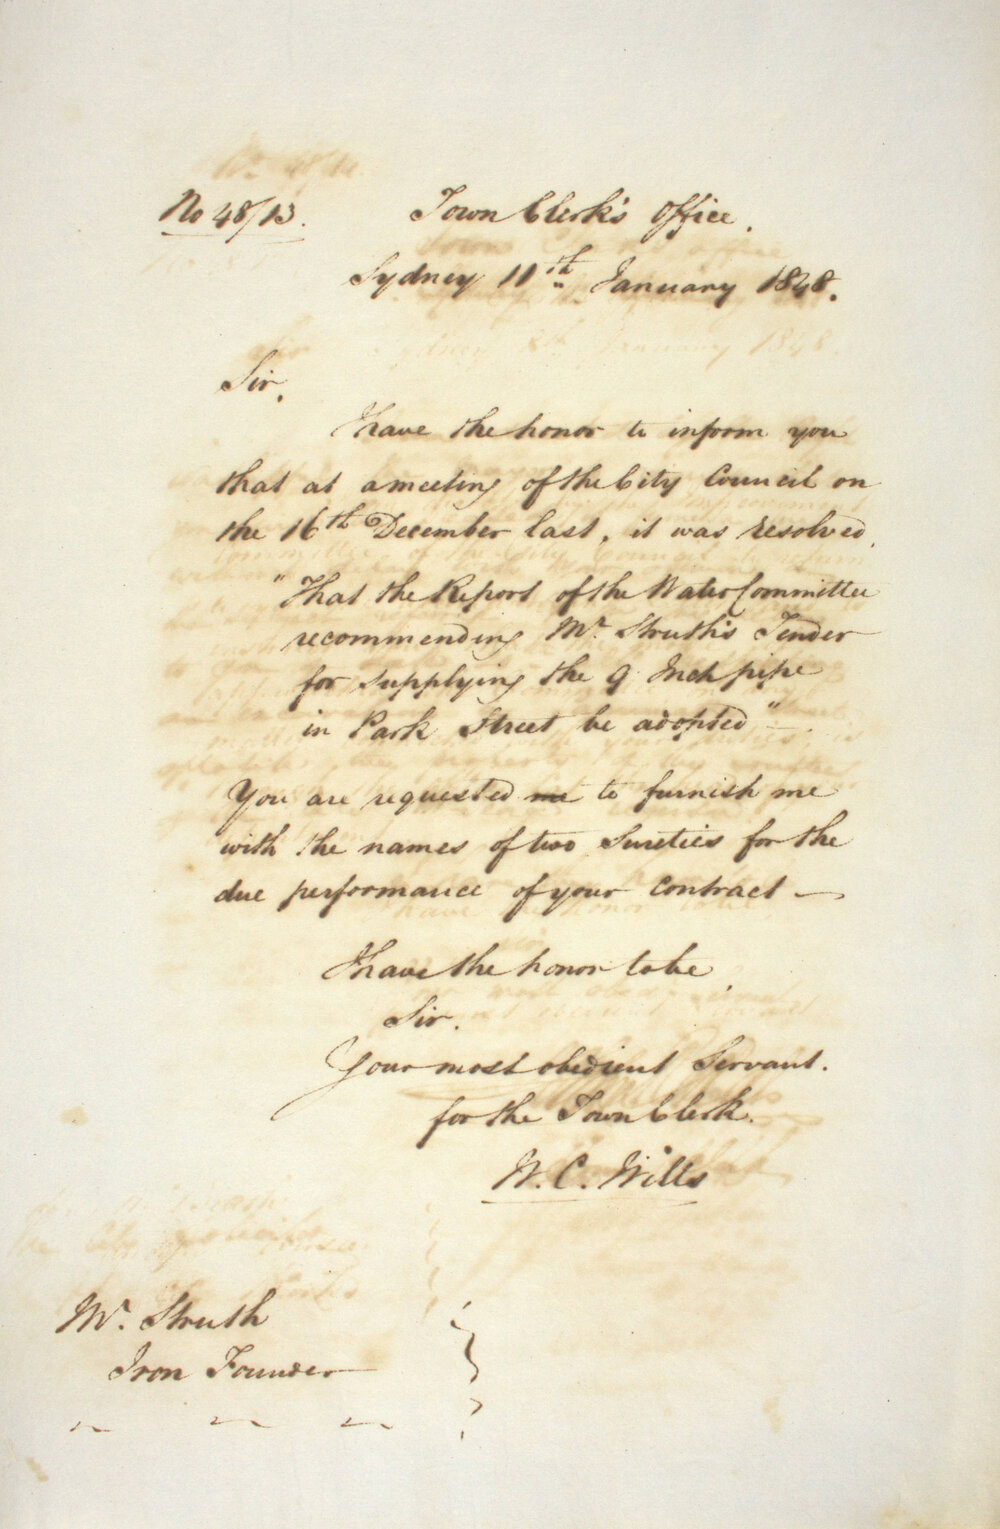 No 48/13.
Town Clerk's Office.
Sydney 11th January 1848.
Sir,
I have the honor to inform you
that at a meeting of the City Council on
the 16th December last, it was resolved,
"That the Report of the Water Committee
recommending Mr. Struth's Tender
for supplying the 9 Inch pipe
in Park Street be adopted" —.
You are requested me to furnish me
with the names of two Sureties for the
due performance of your contract —
I have the honor to be,
Sir,
Your most obedient Servant.
for the Town Clerk.
W. C. Wills
Mr. Struth
Iron Founder